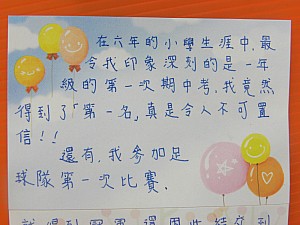 在六年的小學生涯中,最
令我印象深刻的是一年
級的第一次期中考,我竟然
得到了「第一名」真是令人不可置
信!!
還有,我參加足
球隊第一次比賽,
就得到冠軍還因此結交到